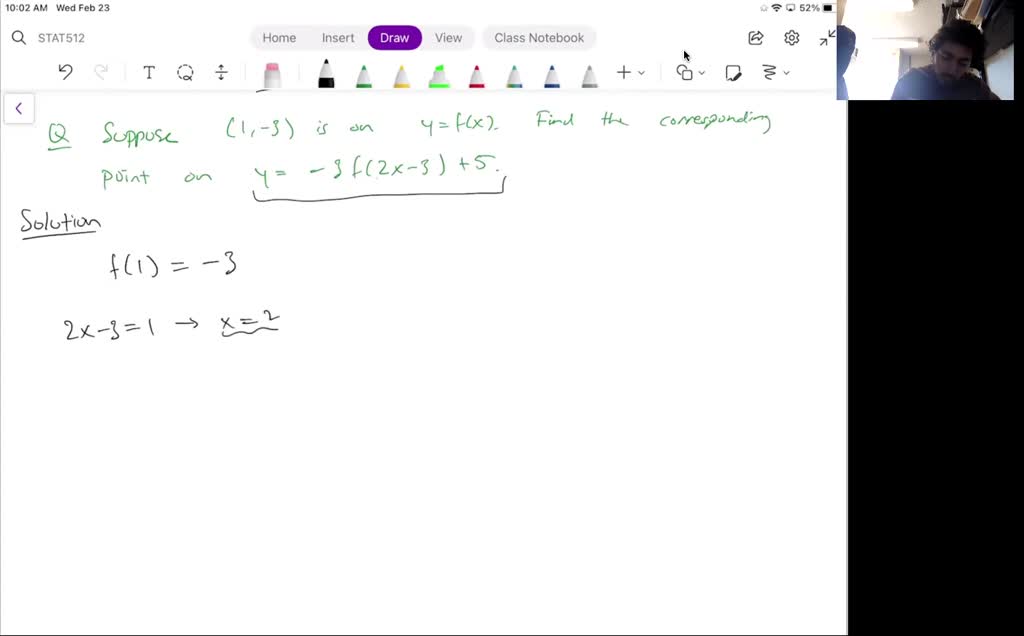 10:02 AM Wed Feb 23
52%
STAT512
Home Insert Draw View Class Notebook
Q Suppose (1,-3) is on y=f(x). Find the corresponding
point on y= -3f(2x-3)+5.
Solution
f(1) = -3
2x-3=1 → x=2